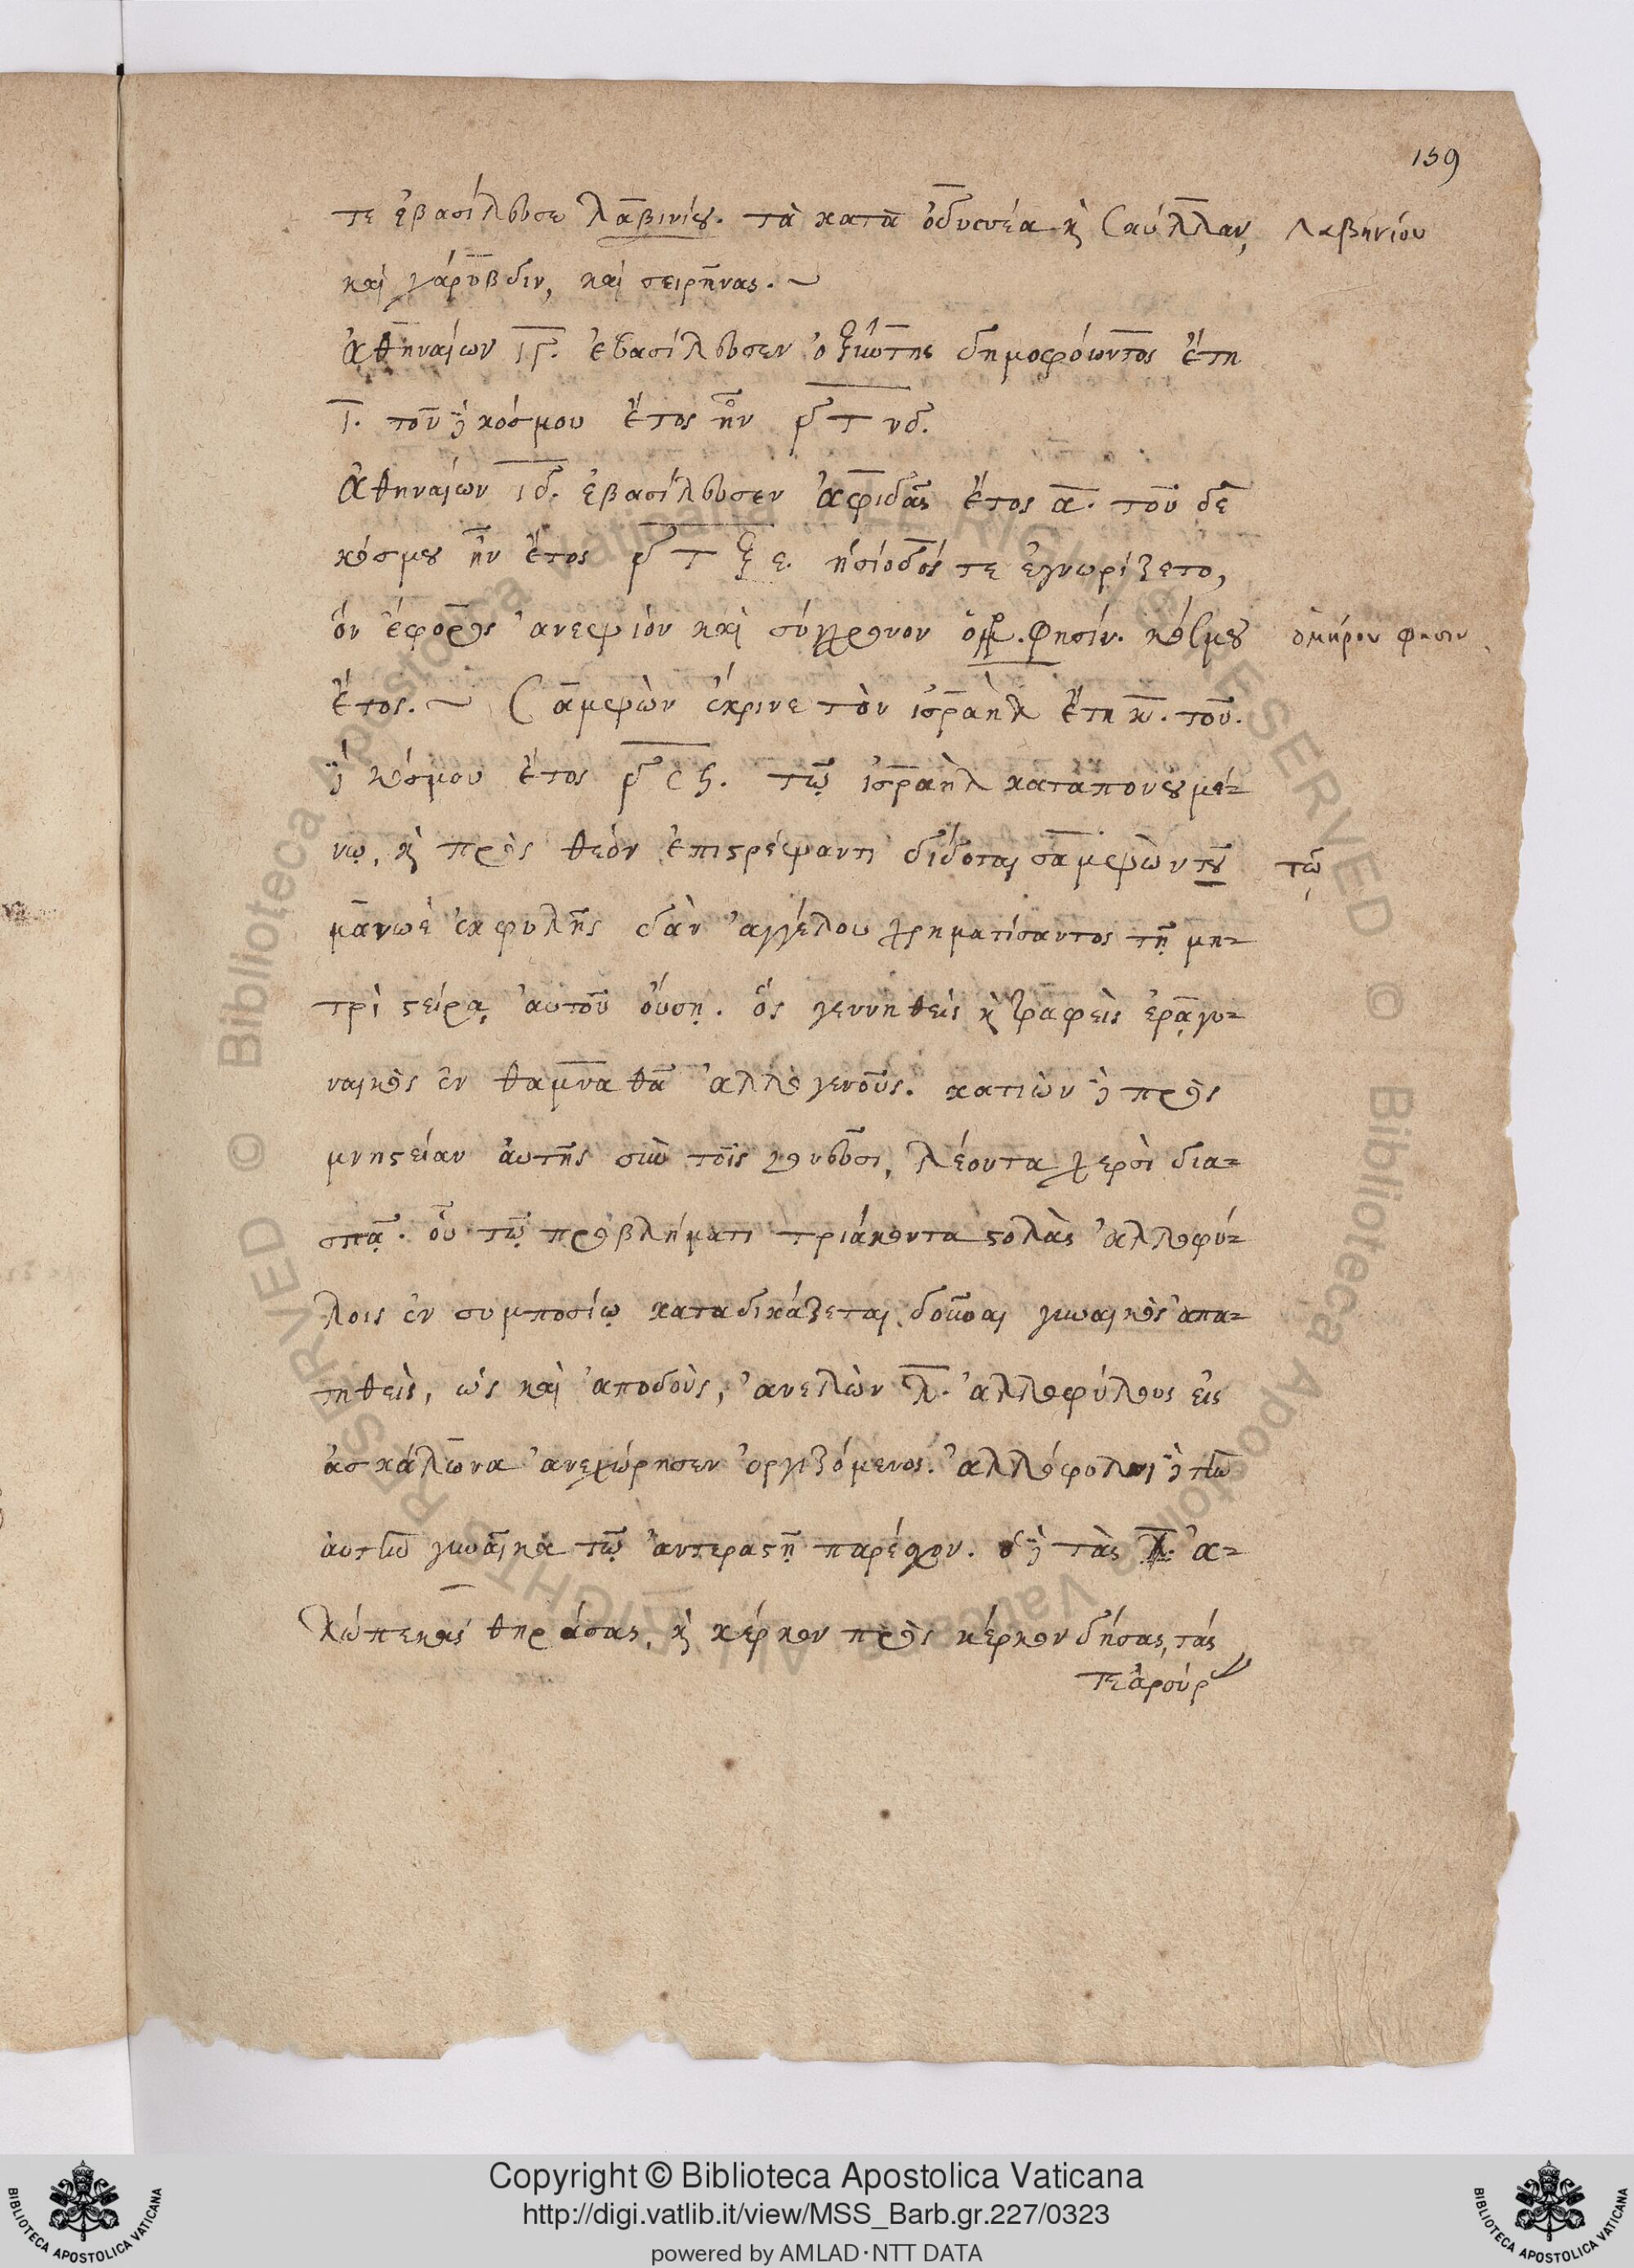 159
τε ἐβασίλευσε λαβινίου. τὰ κατὰ ὀδυσσέα κ̀ Σαύλλαν, λαβηνίου
καὶ χάρυβδιν, καὶ σειρῆνας. ~
ἀθηναίων ιγ. ἐβασίλευσεν δημοφόωντος ἔτη
ι. τοῦ δὲ κόσμου ἔτος ἦν ͵δτνδ.
Ἀθηναίων ιδ. ἐβασίλευσεν ἀφιδὰς ἔτος α. τοῦ δὲ
κόσμου ἦν ἔτος ͵δτξε. ἡσίοδός τε ἐγνωρίζετο,
ὃν ἔφορος ἀνεψιὸν καὶ σύγχρονον ὁμρ. φησίν. κόσμου ὁμήρου φασιν
ἔτος. ~ Σαμψὼν ἔκρινε τὸν ἰσραὴλ ἔτη κ. τοῦ.
δὲ κόσμου ἔτος τῷ ἰσραὴλ καταπονουμέ-
νῳ, κ̀ πρὸς θεὸν ἐπιστρέψαντι δίδοται σαμψὼν τοῦ τῷ
μανωὲ ἐκ φυλῆς δὰν ἀγγέλου χρηματίσαντος τῇ μη-
τρὶ στείρᾳ αὐτοῦ οὔσῃ. ὃς γεννηθεὶς κ̀ τραφεὶς ἐρᾷ γυ-
ναικὸς ἐν θαμναθᾶ ἀλλογενοῦς. κατιὼν δὲ πρὸς
μνηστείαν αὐτῆς σὺν τοῖς γονεῦσι, λέοντα χερσὶ δια-
σπᾷ. οὗ τῷ προβλήματι τριάκοντα στολὰς ἀλλοφύ-
λοις ἐν συμποσίῳ καταδικάζεται δοῦναι γυναικὸς ἀπα-
τηθεὶς, ὡς καὶ ἀποδοὺς, ἀνελὼν λ. ἀλλοφύλους εἰς
ἀσκάλωνα ἀνεχώρησεν ὀργιζόμενος. ἀλλόφολοι δὲ τὴν
αὐτὴν γυναῖκα τῷ ἀντεραστῇ παρέσχον. ὁ δὲ τὰς λ. ἀ-
λώπεκας θηράσας, κ̀ κέρκον πρὸς κέρκον δήσας, τάς
τε ἀρούρ
Copyright © Biblioteca Apostolica Vaticana
http://digi.vatlib.it/view/MSS_Barb.gr.227/0323
powered by AMLAD·NTT DATA